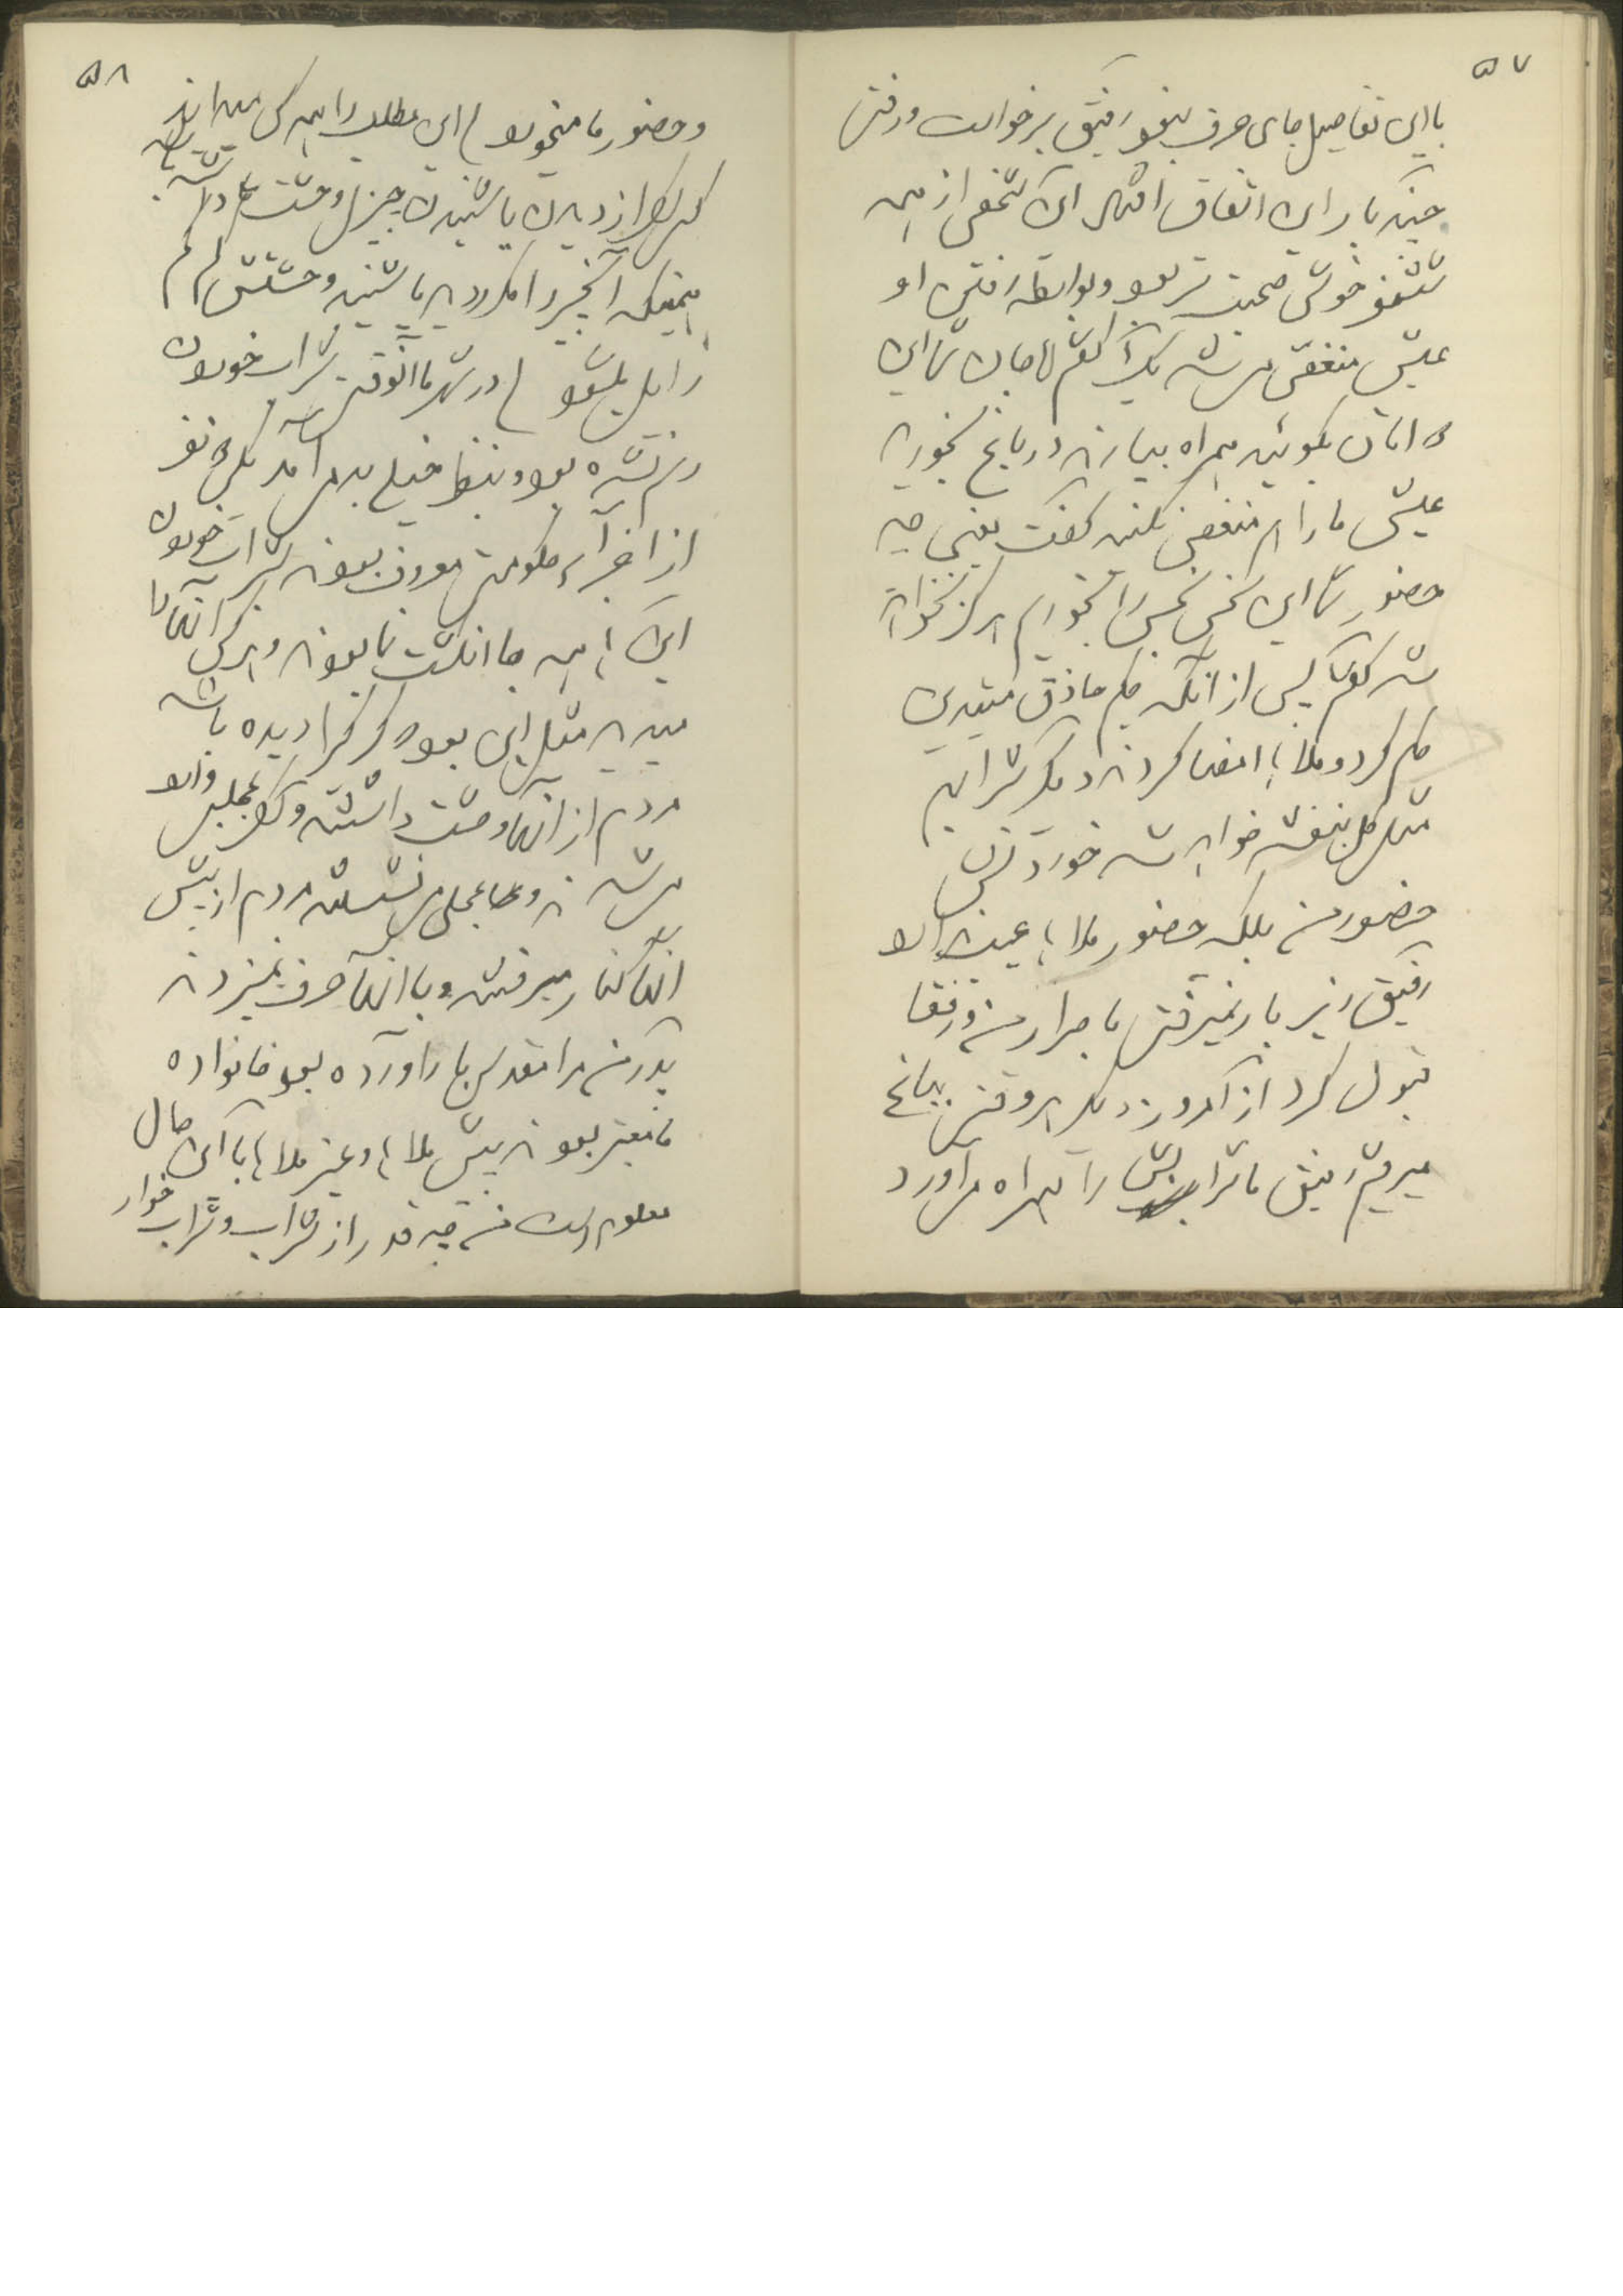 ۵۷
با این تفاصیل جای حرف نبود رفیق برخواست و رفت
چند بار این اتفاق افتاد این شخص از همه
شش نفر خوش صحبت تر بود و بواسطه رفتن او
عیش منغص می شد یکبار گفتم آقا جان شما این
دوا تان بگوئید همراه بیارند در باغ بخورید
عیش ما را هم منغص نکنید گفت یعنی چه
حضور شما این نجس را بخورم هرگز نخواهد
شد گفتم پس از آنکه حکیم حاذق متدین
حکم کرد و ملا ها امضا کردند دیگر شراب
مثل گل بنفشه خواهد شد خوردنش
حضور من بلکه حضور ملا ها عیب ندارد
رفیق زیر بار نمیرفت با صرار من و رفقا
قبول کرد از آنروز دیگر هر وقت بباغ
میرفتیم رفیق ما شرابش را همراه میاورد
۵۸
و حضور ما میخورد این مطلب را همه کس میداند
که هر کس از دیدن یا شنیدن چیزی وحشت داشته باشد
همینکه آنچیز را مکرر دید یا شنید وحشتش کم کم
زایل میشود در شهر ما آنوقت شراب خوردن
رسم نشده بود و بنظرها خیلی بد می آمد یکی دو نفر
از اجزاء حکومت معروف بودند بشراب خوردن
این ها همه جا انگشت نما بودند و هر کس آنها را
میدید مثل این بود که گرگ را دیده باشد
مردم از آنها وحشت داشتند وقتی بمجلس وارد
می شدند و جائی می نشستند مردم از پیش
آنها کنار میرفتند و با آنها حرف نمیزدند
پدر من مرا مقدس بار آورده بود خانواده
ما معتبر بودند پیش ملا ها و غیر ملا ها با این حال
معلوم است من چه قدر از شراب و شراب خوار